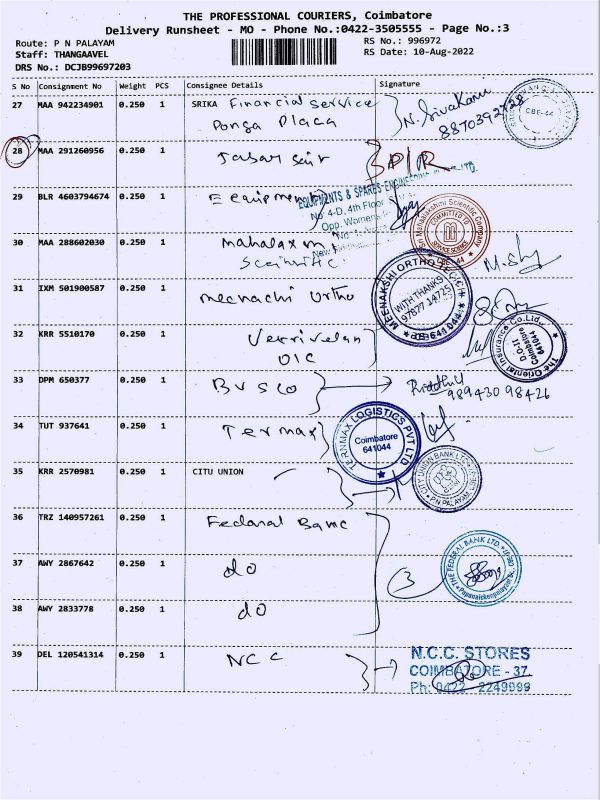 THE PROFESSIONAL COURIERS, Coimbatore
Delivery Runsheet - MO - Phone No.:0422-3505555 - Page No.:3
Route: P N PALAYAM
RS No.: 996972
Staff: THANGAAVEL
RS Date: 10-Aug-2022
DRS No.: DCJB99697203
S No Consignment No Weight PCS Consignee Details Signature
27 MAA 942234901 0.250 1 SRIKA Financial Service N. Sivakami
Ponga Plaza 8870392728
CBE-44
28 MAA 291260956 0.250 1
29 BLR 4603794674 0.250 1 Eequipment
EQUIPMENTS & SPARES ENGINEERING
No 4-D, 4th Floor
Opp. Womens
30 MAA 288602030 0.250 1 mahalaxmi
Sceintific
Sri Mahalakshmi Scientific Company
COMMITTED TO
SERVICE SCIENCE
CBE-44
31 IXM 501900587 0.250 1 meenachi Ortho
MEENAKSHI ORTHO TECH
WITH THANKS
97877 14725
CBE-641 044
32 KRR 5510170 0.250 1 Vetrivelan
OIC
The Oriental Insurance Co.Ltd.,
D.O-II
Coimbatore
641044
33 DPM 650377 0.250 1 BVSCO
98943098426
34 TUT 937641 0.250 1 Termax
TERNMAX LOGISTICS PVT LTD
Coimbatore
641044
35 KRR 2570981 0.250 1 CITU UNION
CITY UNION BANK LTD
P N PALAYAM
36 TRZ 140957261 0.250 1 Fedaral Banc
37 AWY 2867642 0.250 1 do
3
THE FEDERAL BANK LTD.
38 AWY 2833778 0.250 1 do
39 DEL 120541314 0.250 1 NCC
N.C.C. STORES
COIMBATORE - 37
Ph: 0422 - 2249999